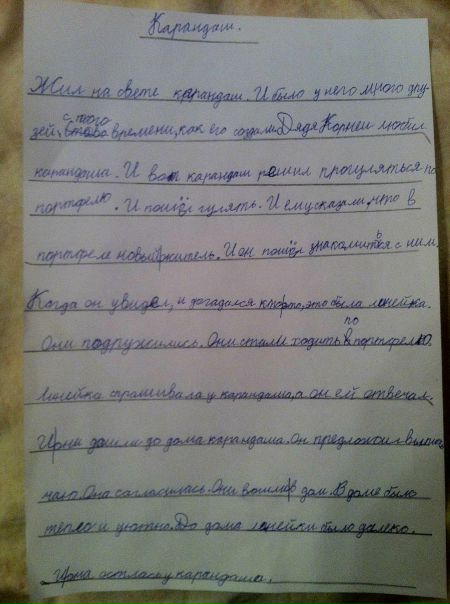 Карандаш.
Жил на свете карандаш. И было у него много дру-
зей, с того времени, как его создали. Дядя Корней любил
карандаша. И вот карандаш решил прогуляться по
портфелю. И пошёл гулять. И ему сказали, что в
портфеле новый житель. И он пошёл знакомится с ним.
Когда он увидел, и догадался кто это, это была линейка.
Они подружились. Они стали ходить по портфелю.
Линейка спрашивала у карандаша, а он ей отвечал.
И они дошли до дома карандаша. Он предложил выпить
чаю. Она согласилась. Они вошли в дом. В доме было
тепло и уютно. До дома линейки было далеко.
И она осталась у карандаша.